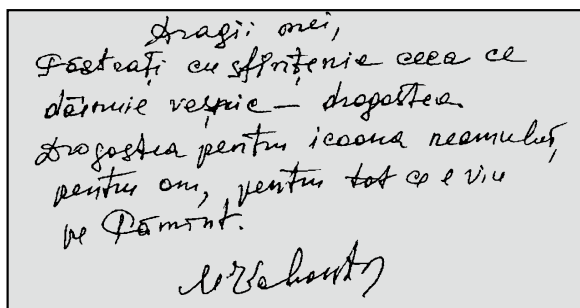 Dragii mei,
Păstrați cu sfințenie ceea ce
dăinuie veșnic — dragostea.
Dragostea pentru icoana neamului,
pentru om, pentru tot ce e viu
pe Pămînt.